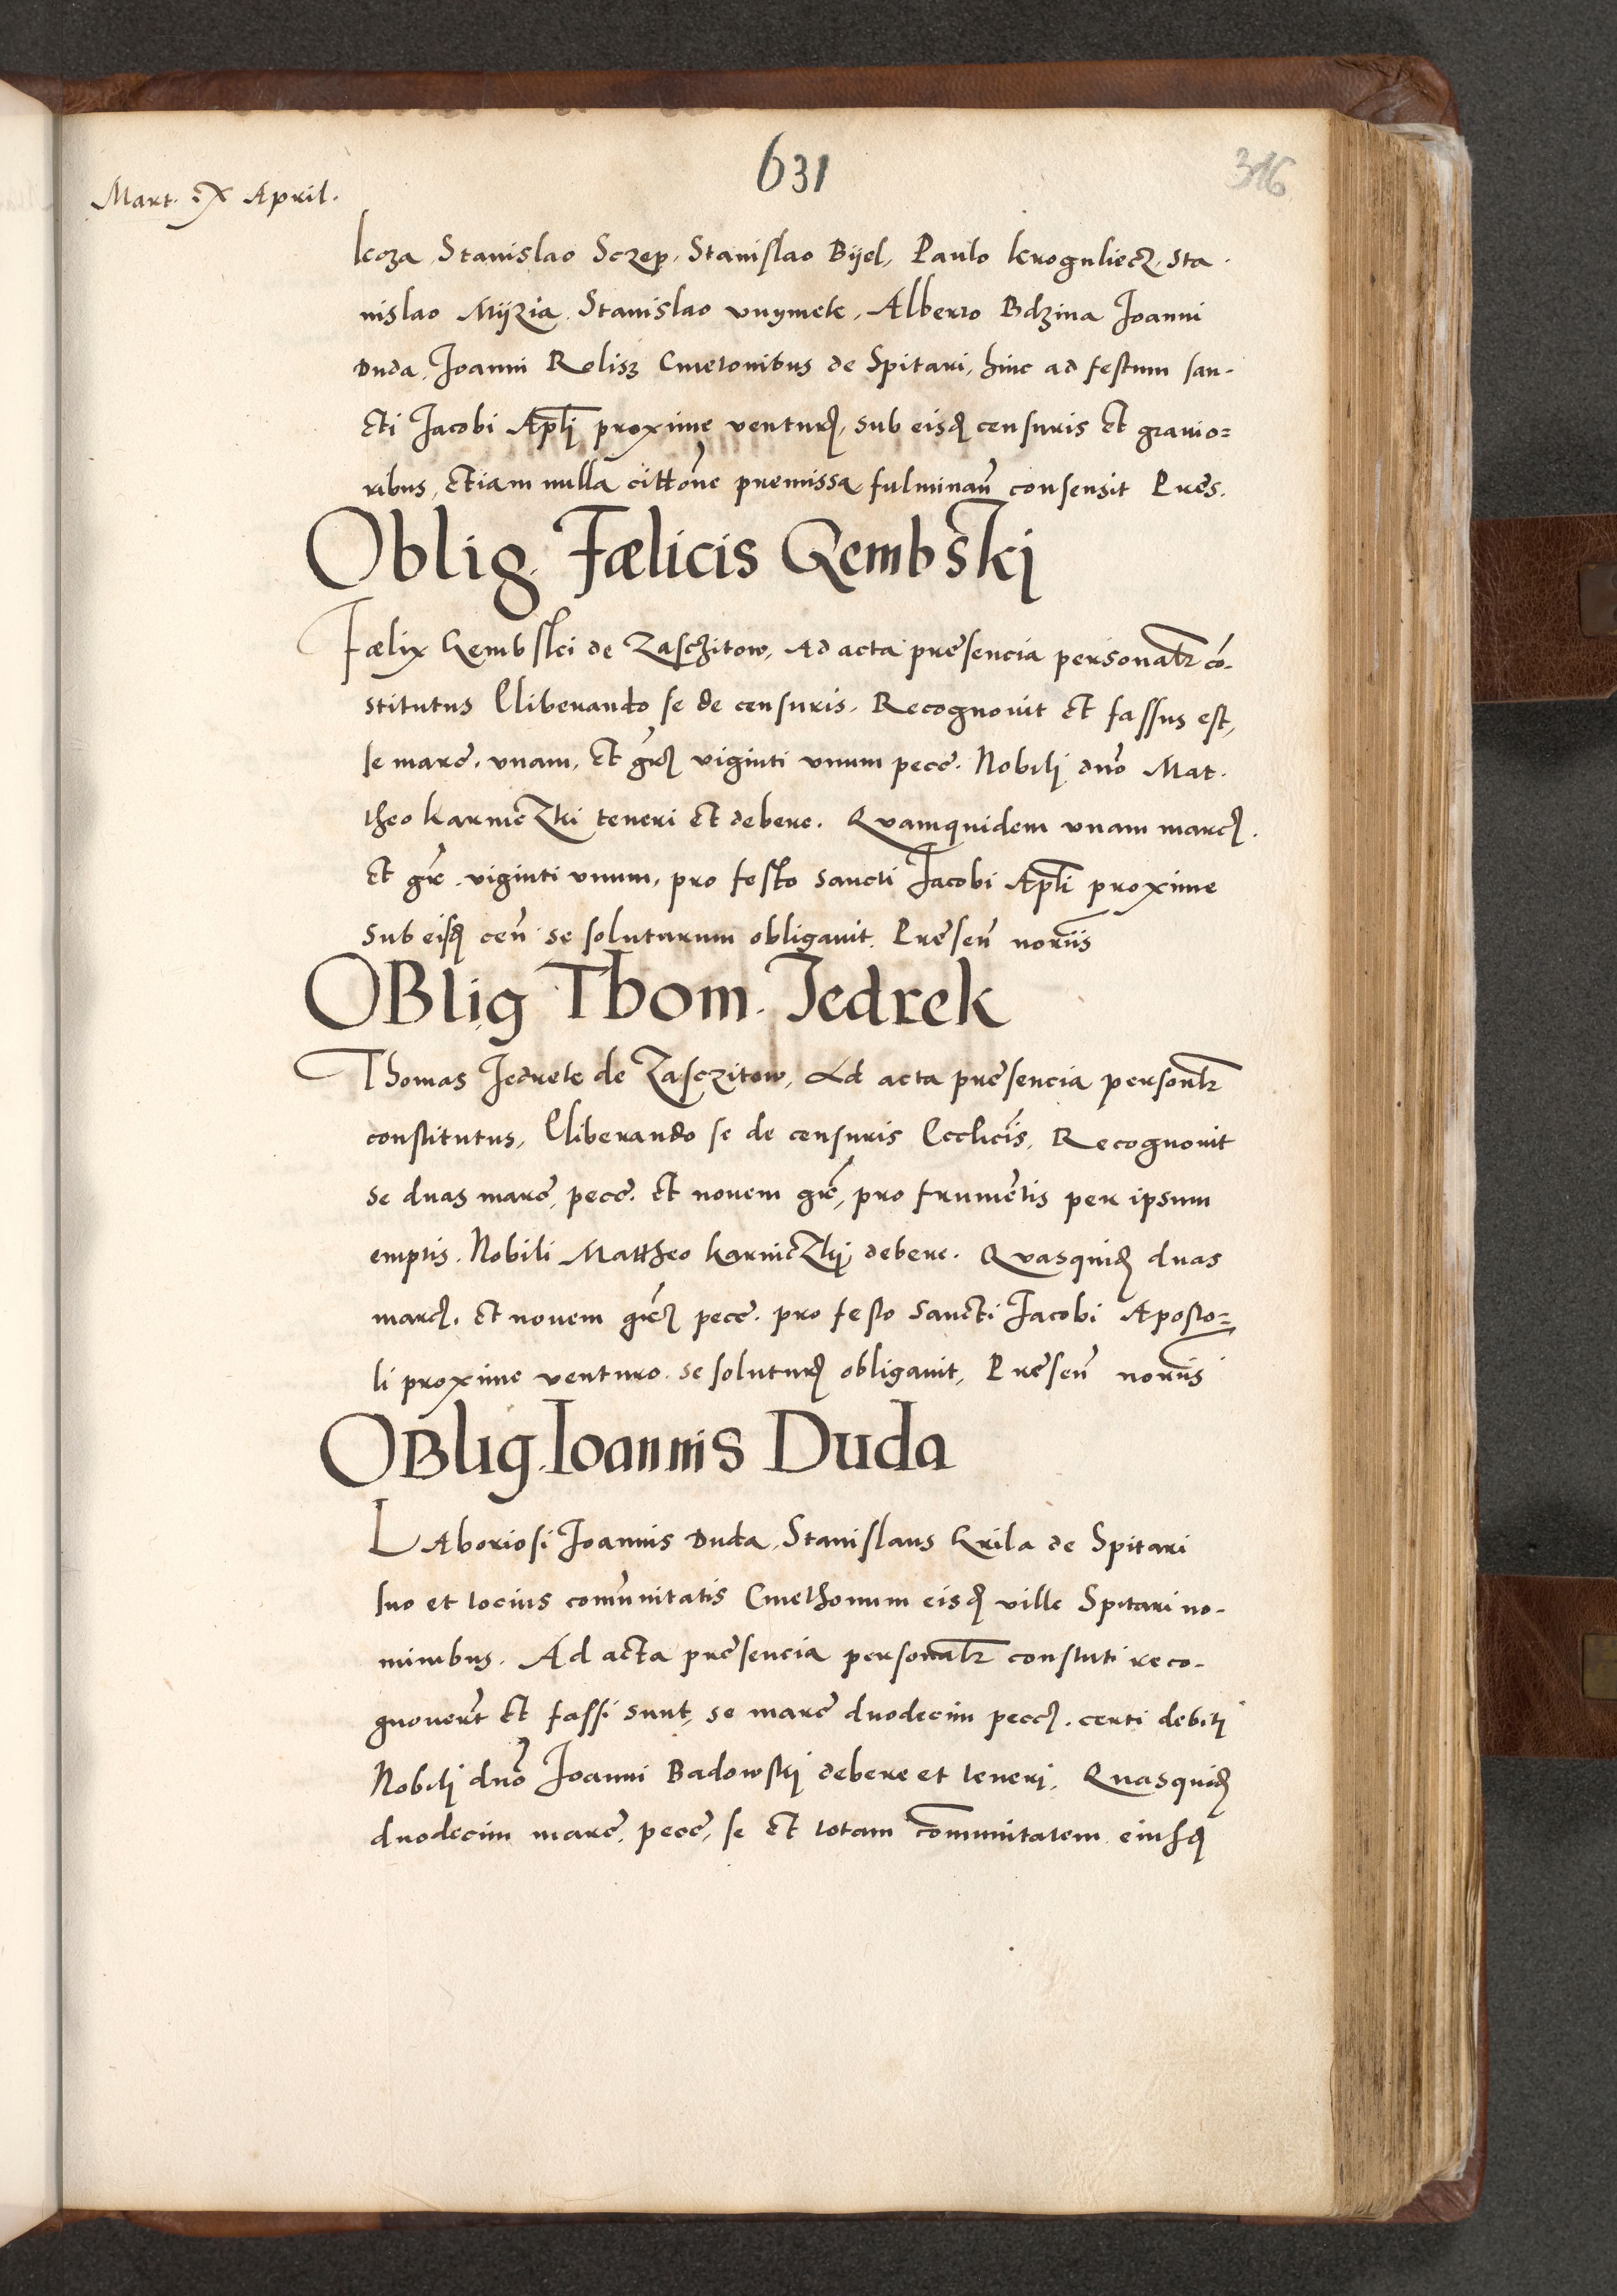 631
316
Mart. IX April.
koza, Stanislao Sczep, Stanislao Bijel, Paulo kroguliecz, Sta-
nislao Mijzia, Stanislao vnymek, Alberto Bdzina Joanni
Duda, Joanni Rolisz Cmetonibus de Spitari, hinc ad festum san-
cti Jacobi Apli proxime ventur, sub eisd censuris et gravio=
ribus, etiam nulla cittone premissa fulminan consensit Pres.
Oblig. Fælicis Gembski
Fælix Gembski de Zasczitow, Ad acta presencia personalr co-
stitutus Lliberando se de censuris. Recognovit et fassus est,
se marc. unam, et gr viginti unum pecc. Nobili dno Mat-
theo karniczki teneri et debere. Quamquidem unam marc.
et gr. viginti unum, pro festo sancti Jacobi Apli proxime
sub eisd cen se soluturum obligavit. Presen noriis
OBlig Thom. Jedrek
Thomas Jedrek de Zasczitow, Ad acta presencia personlr
constitutus, Lliberando se de censuris Ecclicis, Recognovit
se duas marc, pecc. et novem gr, pro frumetis per ipsum
emptis. Nobili Mattheo karniczkij debere. Quasquid duas
marc. et novem gr pecc. pro festo sancti Jacobi Aposto=
li proxime venturo. se solutur obligavit, Presen noriis
OBlig. Ioannis Duda
LAboriosi Joannis Duda, Stanislaus Grila de Spitari
suo et tocius comunitatis Cmethonum eisd ville Spitari no-
minibus. Ad acta presencia personalr constuti reco-
gnovert et fassi sunt, se marc duodecim pecc. certi debiti
Nobili dno Joanni Badowski debere et teneri. Quasquid
duodecim marc, pecc, se et totam communitatem eiusd